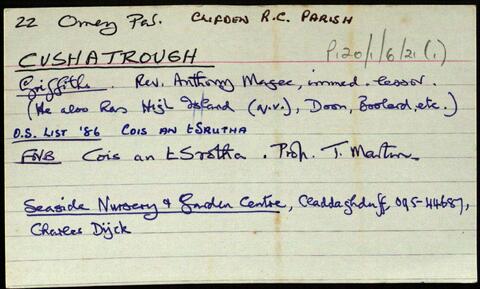 22 Omey Par. CLIFDEN R.C. PARISH
P120/1/6/21(1)
CUSHATROUGH
Griffith. Rev. Anthony Magee, immed. lessor.
(He also has High Island (q.v.), Doon, Boolard, etc.)
O.S. LIST '86 COIS AN tSRUTHA
FNB Cois an tSrotha. Prop. T. Martin
Seaside Nursery & Garden Centre, Claddaghduff, 095-44687,
Charles Dijck